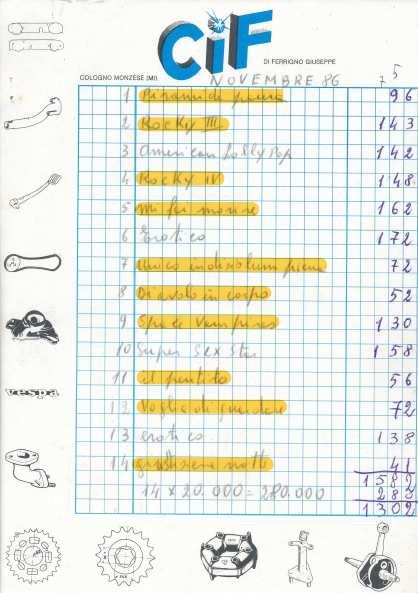 CiF
DI FERRIGNO GIUSEPPE
COLOGNO MONZESE (MI)
NOVEMBRE 86
1 di paura 96
2 Rocky III 143
3 American Lolly Pop 142
4 Rocky IV 148
5 Mi fai morire 162
6 Erotico 172
7 Unico indizio luna piena 72
8 Diavolo in corpo 52
9 Space Vampires 130
10 Super Sex Star 158
11 il pentito 56
12 Voglia di guardare 72
13 erotico 138
14 giustiziere notte 41
1582
14 x 20.000 = 280.000 280
1302
vespa